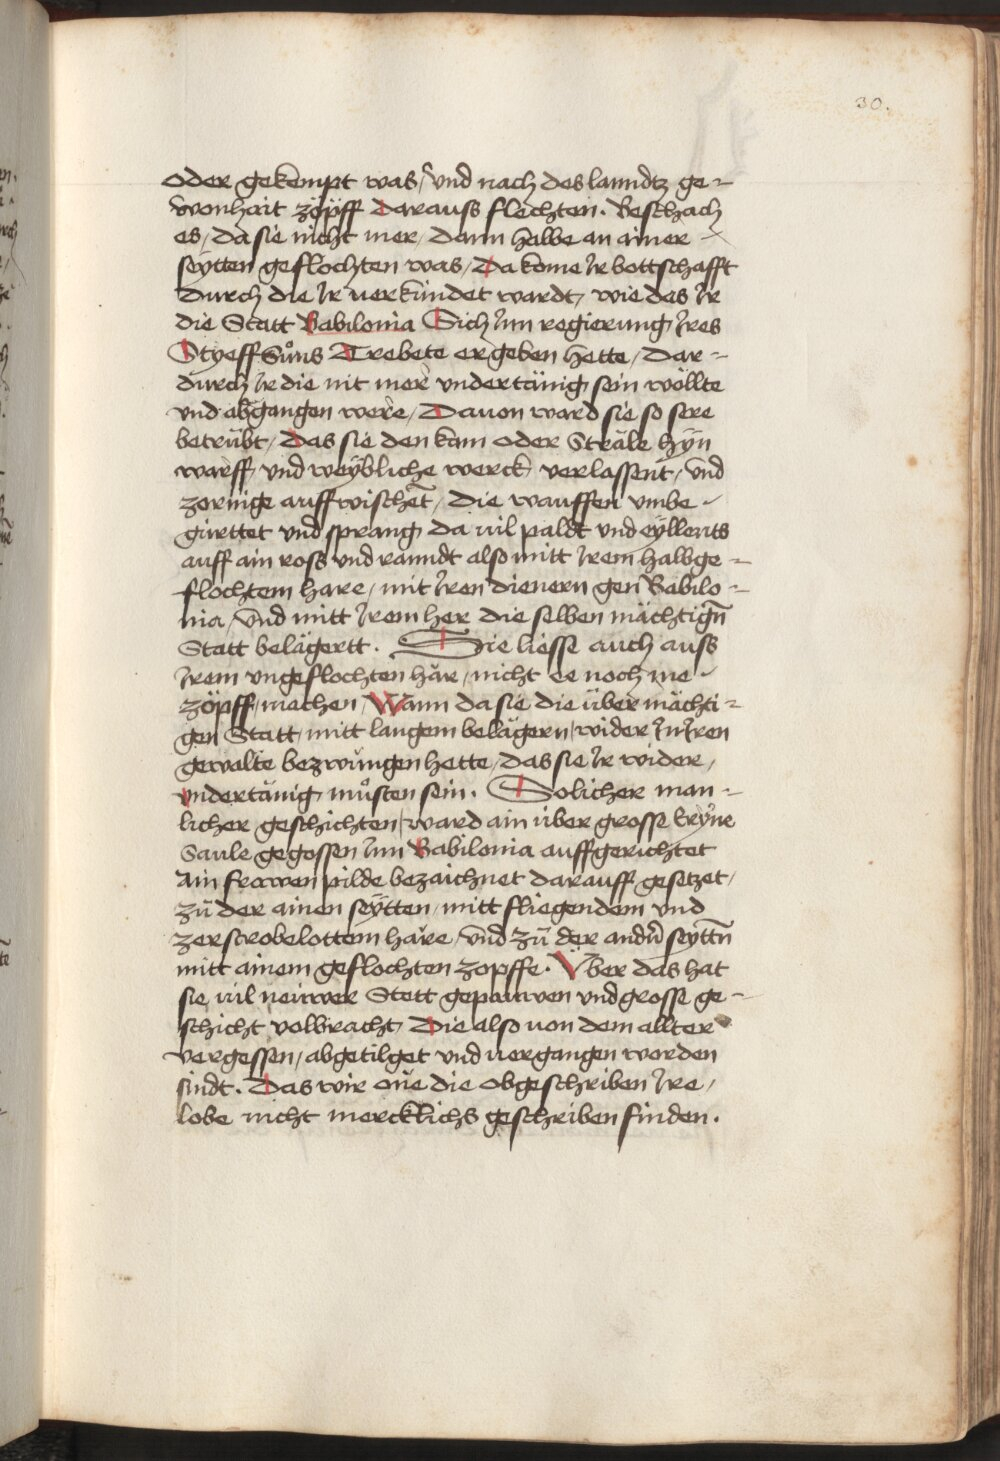 30.
oder gekempt was / vnd nach des lanndtz ge-
wonhait zöpff darauss flechten. Beschach
es / da sie nicht mer / dann halbe an ainer
seÿtten geflochten was / Da kome Ir bottschafft
durch die Ir uerkündet wardt / wie das Ir
die Statt Babilonia Sich Inn regierung Ires
Styeff Sůns Trebete ergeben hette / dar-
durch Ir die nit mere vndertänig sein wöllte
vnd abgangen were / Dauon ward sie so sere
betrübt / das sie den kam oder Sträle hÿn
warff / vnd weÿbliche werck verlassent / vnd
zornige auffwischet / die wauffen vmbe-
gürttet vnd sprang da uil paldt vnd eÿllents
auff ain ross vnd ranndt also mitt Irem halbge-
flochtem hare / mit Iren dienern gen Babilo-
nia / vnd mitt Irem her die selben mächtign̄
Statt belägertt. Sie liesse auch auss
Irem vngeflochten här / nicht ee noch me
zöpff machen / Wann da sie die über mächti-
gen Statt / mitt langem belägern / wider In Iren
gewalte bezwungen hette / das sie Ir wider /
vndertänig můsten sein. Solicher man-
licher geschichten / ward ain über grosse erÿne
Saule gegossen Inn Babilonia auffgerichtet
Ain frowen pilde bezaichnet darauff gesetzet /
zů der ainen seÿtten / mitt fliegendem vnd
zerstrobelottem häre / vnd zů der andn̄ seyttn̄
mitt ainem geflochten zopffe. Vber das hat
sie uil neüwer Stett gepauwen vnd grosse ge-
schicht volbracht / Die also von dem allter
vergessen / abgetilget vnd uergangen worden
sindt. Das wir one die obgeschriben Ire /
lobe nicht mercklichs geschriben finden.